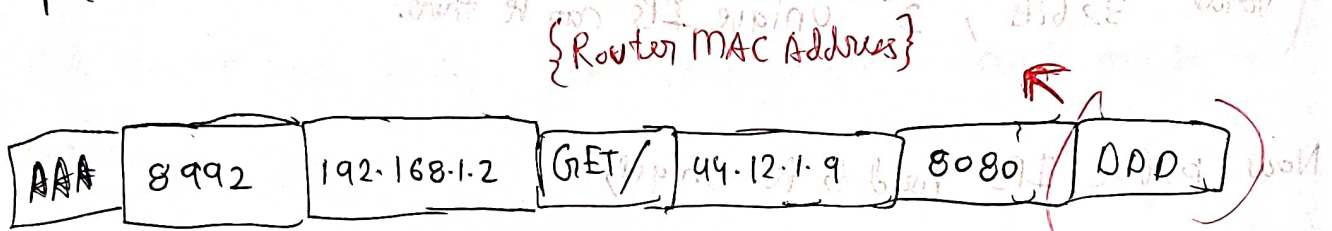 {Router MAC Address}
AAA 8992 192.168.1.2 GET/ 44.12.1.9 8080 DDD